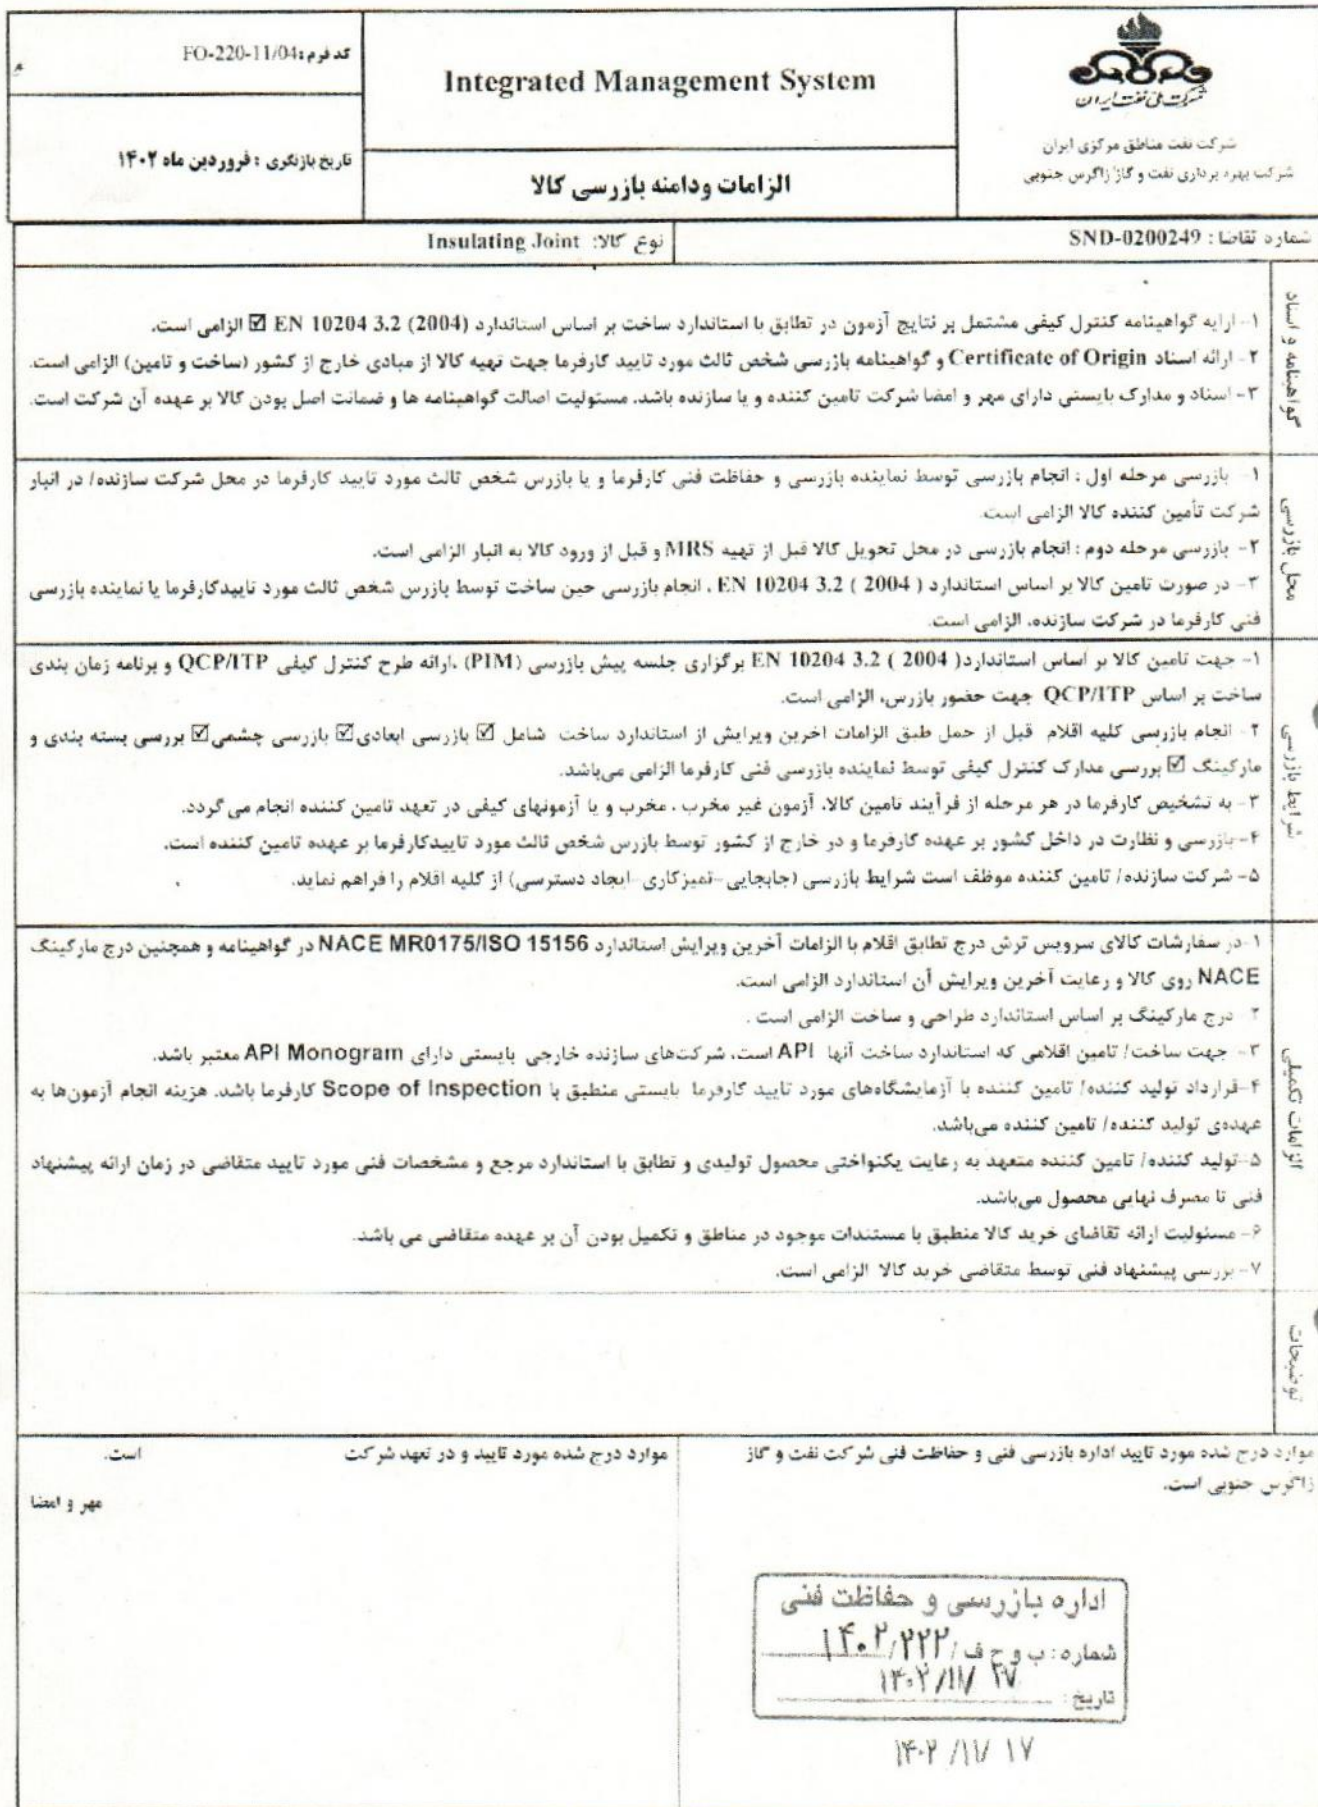 شرکت ملی نفت ایران
شرکت نفت مناطق مرکزی ایران
شرکت بهره برداری نفت و گاز زاگرس جنوبی
Integrated Management System
الزامات ودامنه بازرسی کالا
کد فرم: FO-220-11/04
تاریخ بازنگری : فروردین ماه ۱۴۰۲
شماره تقاضا : SND-0200249
نوع کالا: Insulating Joint
گواهینامه و اسناد
۱- ارایه گواهینامه کنترل کیفی مشتمل بر نتایج آزمون در تطابق با استاندارد ساخت بر اساس استاندارد EN 10204 3.2 (2004) ☑ الزامی است.
۲- ارائه اسناد Certificate of Origin و گواهینامه بازرسی شخص ثالث مورد تایید کارفرما جهت تهیه کالا از مبادی خارج از کشور (ساخت و تامین) الزامی است.
۳- اسناد و مدارک بایستی دارای مهر و امضا شرکت تامین کننده و یا سازنده باشد. مسئولیت اصالت گواهینامه ها و ضمانت اصل بودن کالا بر عهده آن شرکت است.
محل بازرسی
۱- بازرسی مرحله اول : انجام بازرسی توسط نماینده بازرسی و حفاظت فنی کارفرما و یا بازرس شخص ثالث مورد تایید کارفرما در محل شرکت سازنده/ در انبار
شرکت تأمین کننده کالا الزامی است.
۲- بازرسی مرحله دوم : انجام بازرسی در محل تحویل کالا قبل از تهیه MRS و قبل از ورود کالا به انبار الزامی است.
۳- در صورت تامین کالا بر اساس استاندارد ( 2004 ) EN 10204 3.2 ، انجام بازرسی حین ساخت توسط بازرس شخص ثالث مورد تاییدکارفرما یا نماینده بازرسی
فنی کارفرما در شرکت سازنده، الزامی است.
شرایط بازرسی
۱- جهت تامین کالا بر اساس استاندارد( 2004 ) EN 10204 3.2 برگزاری جلسه پیش بازرسی (PIM) ،ارائه طرح کنترل کیفی QCP/ITP و برنامه زمان بندی
ساخت بر اساس QCP/ITP جهت حضور بازرس، الزامی است.
۲- انجام بازرسی کلیه اقلام قبل از حمل طبق الزامات اخرین ویرایش از استاندارد ساخت شامل ☑ بازرسی ابعادی☑ بازرسی چشمی☑ بررسی بسته بندی و
مارکینگ ☑ بررسی مدارک کنترل کیفی توسط نماینده بازرسی فنی کارفرما الزامی می‌باشد.
۳- به تشخیص کارفرما در هر مرحله از فرآیند تامین کالا، آزمون غیر مخرب ، مخرب و یا آزمونهای کیفی در تعهد تامین کننده انجام می گردد.
۴- بازرسی و نظارت در داخل کشور بر عهده کارفرما و در خارج از کشور توسط بازرس شخص ثالث مورد تاییدکارفرما بر عهده تامین کننده است.
۵- شرکت سازنده/ تامین کننده موظف است شرایط بازرسی (جابجایی-تمیزکاری-ایجاد دسترسی) از کلیه اقلام را فراهم نماید.
الزامات تکمیلی
۱-در سفارشات کالای سرویس ترش درج تطابق اقلام با الزامات آخرین ویرایش استاندارد NACE MR0175/ISO 15156 در گواهینامه و همچنین درج مارکینگ
NACE روی کالا و رعایت آخرین ویرایش آن استاندارد الزامی است.
۲- درج مارکینگ بر اساس استاندارد طراحی و ساخت الزامی است .
۳- جهت ساخت/ تامین اقلامی که استاندارد ساخت آنها API است، شرکت‌های سازنده خارجی بایستی دارای API Monogram معتبر باشد.
۴-قرارداد تولید کننده/ تامین کننده با آزمایشگاه‌های مورد تایید کارفرما بایستی منطبق با Scope of Inspection کارفرما باشد. هزینه انجام آزمون‌ها به
عهده‌ی تولید کننده/ تامین کننده می‌باشد.
۵-تولید کننده/ تامین کننده متعهد به رعایت یکنواختی محصول تولیدی و تطابق با استاندارد مرجع و مشخصات فنی مورد تایید متقاضی در زمان ارائه پیشنهاد
فنی تا مصرف نهایی محصول می‌باشد.
۶- مسئولیت ارائه تقاضای خرید کالا منطبق با مستندات موجود در مناطق و تکمیل بودن آن بر عهده متقاضی می باشد.
۷- بررسی پیشنهاد فنی توسط متقاضی خرید کالا الزامی است.
توضیحات
موارد درج شده مورد تایید اداره بازرسی فنی و حفاظت فنی شرکت نفت و گاز
زاگرس جنوبی است.
موارد درج شده مورد تایید و در تعهد شرکت است.
مهر و امضا
اداره بازرسی و حفاظت فنی
شماره: ب و ح ف /۱۴۰۲/۲۲۲
تاریخ: ۱۴۰۲/۱۱/۱۷
۱۴۰۲/۱۱/۱۷